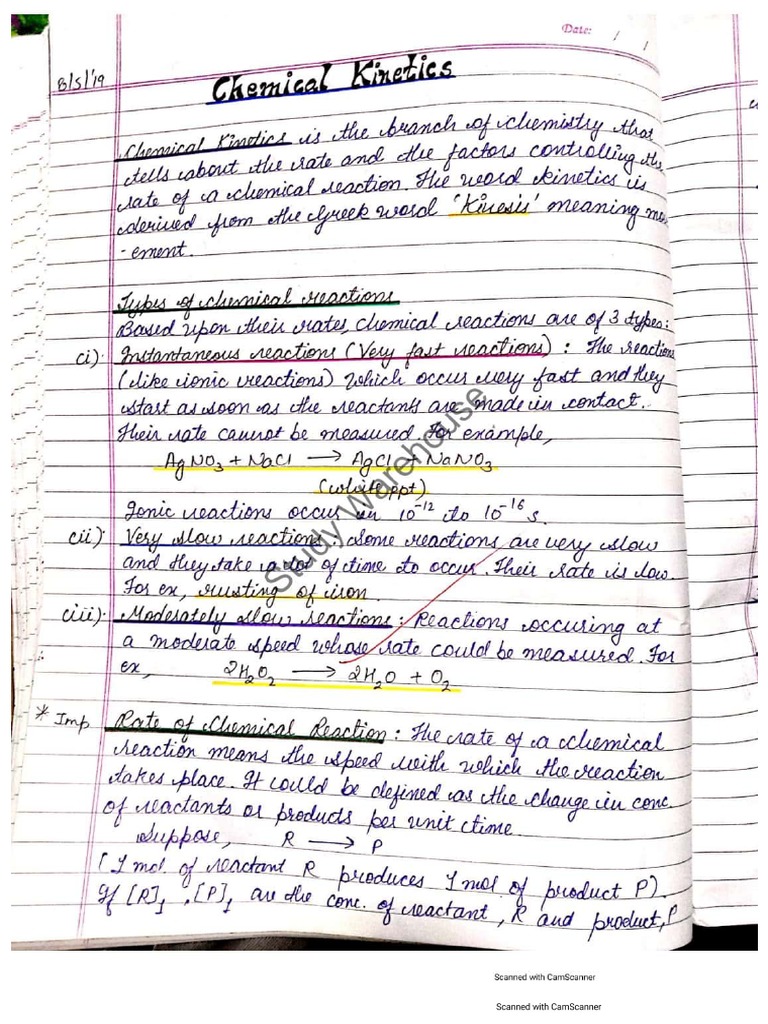 Date: / /
8/5/'19
Chemical Kinetics
Chemical Kinetics is the branch of chemistry that
tells about the rate and the factors controlling the
rate of a chemical reaction. The word kinetics is
derived from the Greek word 'Kinesis' meaning mov
-ement.
Types of chemical reactions
Based upon their rates, chemical reactions are of 3 types:
(i). Instantaneous reactions (Very fast reactions) : The reactions
(like ionic reactions) which occur very fast and they
start as soon as the reactants are made in contact.
Their rate cannot be measured. For example,
AgNO₃ + NaCl → AgCl + NaNO₃
(white ppt)
Ionic reactions occur in 10⁻¹² to 10⁻¹⁶ s.
(ii) Very slow reactions : Some reactions are very slow
and they take a lot of time to occur. Their rate is low.
For ex, rusting of iron.
(iii). Moderately slow reactions : Reactions occuring at
a moderate speed whose rate could be measured. For
ex, 2H₂O₂ → 2H₂O + O₂
* Imp Rate of Chemical Reaction : The rate of a chemical
reaction means the speed with which the reaction
takes place. It could be defined as the change in conc.
of reactants or products per unit time.
Suppose, R → P
(1 mol. of reactant R produces 1 mol of product P).
If [R]₁, [P]₁ are the conc. of reactant, R and product, P
Study Warehouse
Scanned with CamScanner
Scanned with CamScanner